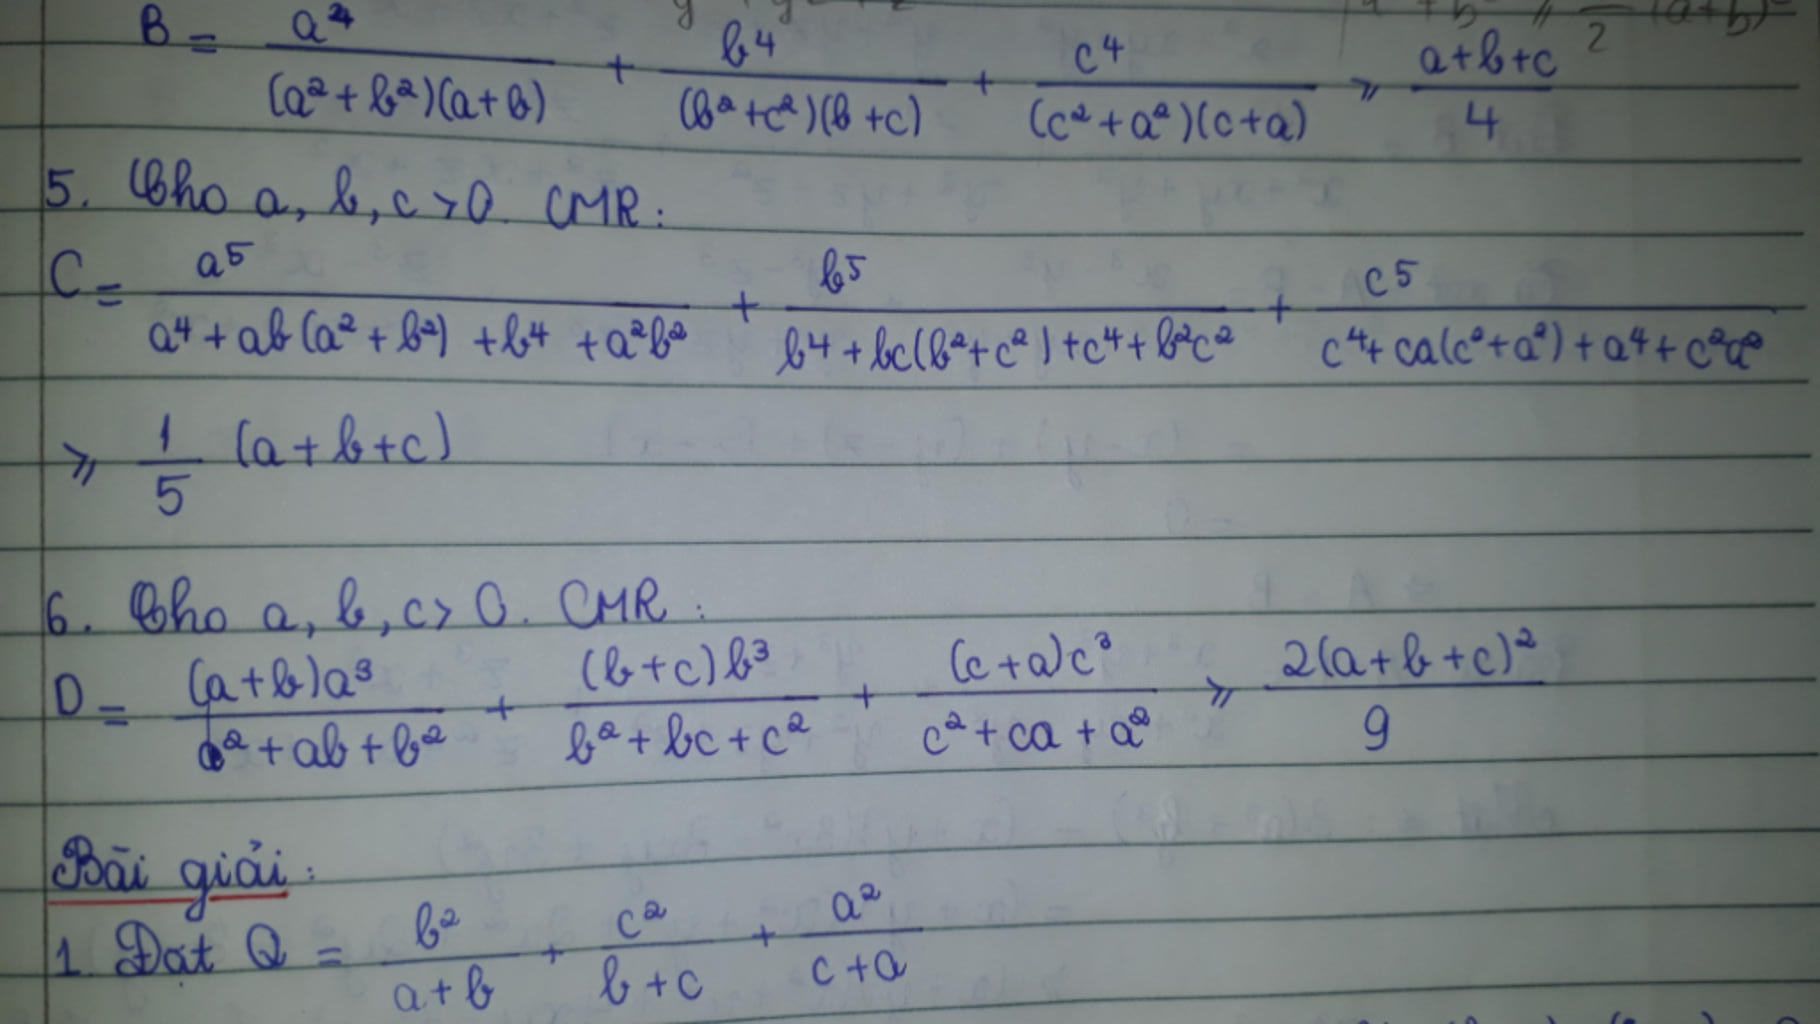 B = a⁴/((a²+b²)(a+b)) + b⁴/((b²+c²)(b+c)) + c⁴/((c²+a²)(c+a)) ⩾ (a+b+c)/4
5. Cho a, b, c > 0. CMR:
C = a⁵/(a⁴+ab(a²+b²)+b⁴+a²b²) + b⁵/(b⁴+bc(b²+c²)+c⁴+b²c²) + c⁵/(c⁴+ca(c²+a²)+a⁴+c²a²)
⩾ 1/5 (a+b+c)
6. Cho a, b, c > 0. CMR:
D = (a+b)a³/(a²+ab+b²) + (b+c)b³/(b²+bc+c²) + (c+a)c³/(c²+ca+a²) ⩾ 2(a+b+c)²/9
Bài giải:
1. Đặt Q = b²/(a+b) + c²/(b+c) + a²/(c+a)